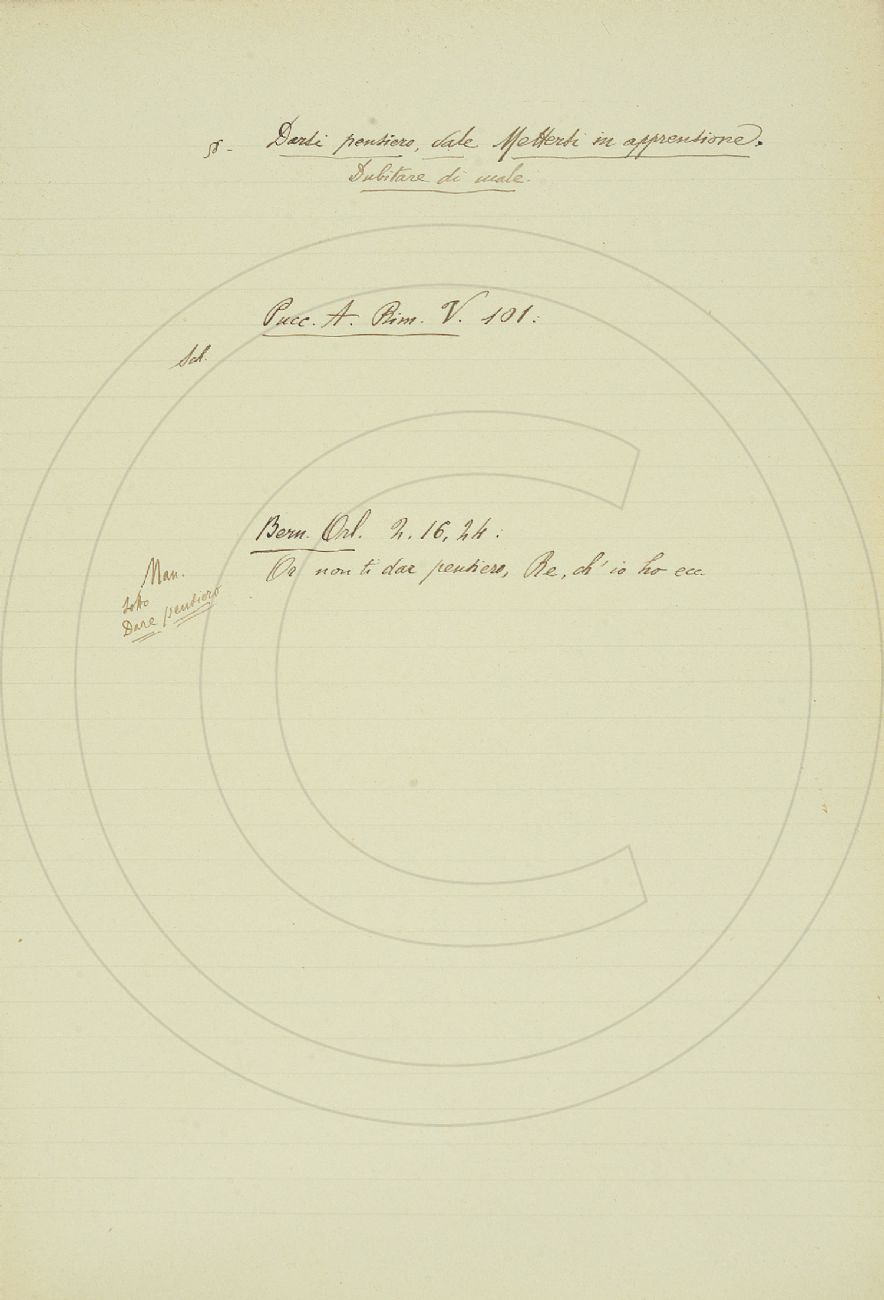 § - Darsi pensiero, vale Mettersi in apprensione.
Dubitare di male.
Pucc. A. Rim. V. 101:
Sel.
Bern. Orl. 2. 16, 24:
Or non ti dar pensiero, Re, ch' io ho ecc.
Man.
sotto
Dare pensiero